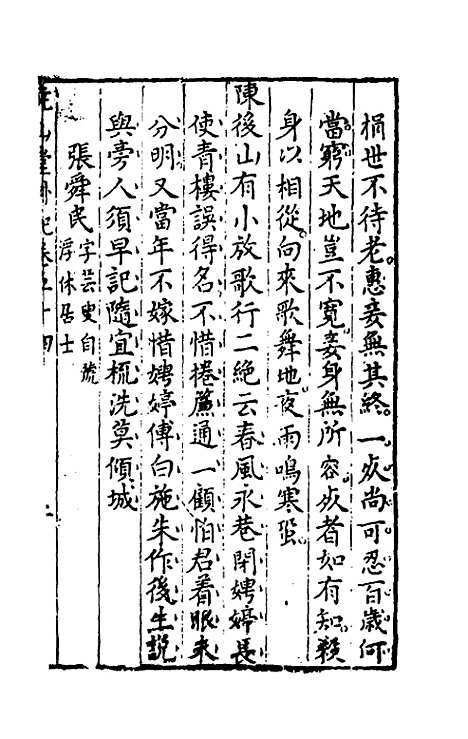 捐世不待老惠妾無其終一死尚可忍百歲何
當窮天地豈不寬妾身無所容死者如有知殺
身以相從向來歌舞地夜雨鳴寒蛩
陳後山有小放歌行二絶云春風永巷閉娉婷長
使青樓誤得名不惜捲簾通一顧怕君着眼未
分明又當年不嫁惜娉婷傅白施朱作後生說
與旁人須早記隨宜梳洗莫傾城
張舜民字芸叟自號
浮休居士
堯山堂外紀卷五十四